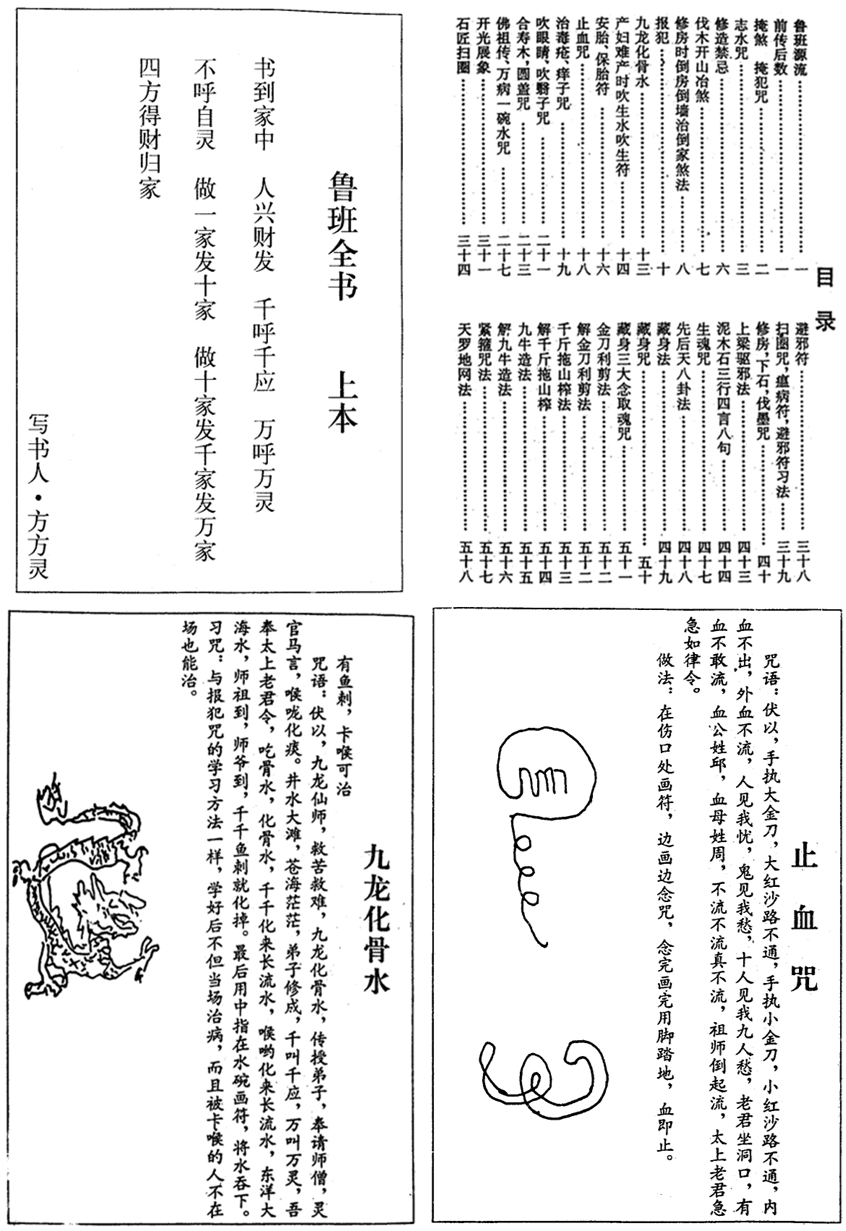 鲁班全书 上本
书到家中 人兴财发 千呼千应 万呼万灵
不呼自灵 做一家发十家 做十家发千家发万家
四方得财归家
写书人·方方灵
目录
鲁班源流……一
前传后教……一
掩煞 掩犯咒……二
志水咒……三
修造禁忌……六
伐木开山冶煞……七
修房时倒房倒墙治倒家煞法……八
报犯……十
九龙化骨水……十三
产妇难产时吹生水吹生符……十四
安胎、保胎符……十六
止血咒……十八
治毒疮、痒子咒……十九
吹眼睛，吹翳子咒……二十一
合寿木，圆盖咒……二十三
佛祖传、万病一碗水咒……二十七
开光展象……三十一
石匠扫圈……三十四
避邪符……三十八
扫圈咒，瘟病符，避邪符习法……三十九
修房，下石，伐墨咒……四十
上梁驱邪法……四十三
泥木石三行四言八句……四十四
生魂咒……四十七
先后天八卦法……四十八
藏身法……四十九
藏身咒……五十
藏身三大念取魂咒……五十一
金刀利剪法……五十二
解金刀利剪法……五十二
千斤拖山榨法……五十三
解千斤拖山榨……五十四
九牛造法……五十五
解九牛造法……五十六
紧箍咒法……五十七
天罗地网法……五十八
九龙化骨水
有鱼刺，卡喉可治
咒语：伏以，九龙仙师，救苦救难，九龙化骨水，传授弟子，奉请师僧，灵
官马言，喉咙化痰。井水大滩，苍海茫茫，弟子修成，千叫千应，万叫万灵，吾
奉太上老君令，吃骨水，化骨水，千千化来长流水，喉哟化来长流水，东洋大
海水，师祖到，师爷到，千千鱼刺就化掉。最后用中指在水碗画符，将水吞下。
习咒：与报犯咒的学习方法一样，学好后不但当场治病，而且被卡喉的人不在
场也能治。
止血咒
咒语：伏以，手执大金刀，大红沙路不通，手执小金刀，小红沙路不通，内
血不出，外血不流，人见我忧，鬼见我愁，十人见我九人愁，老君坐洞口，有
血不敢流，血公姓邱，血母姓周，不流不流真不流，祖师倒起流，太上老君急
急如律令。
做法：在伤口处画符，边画边念咒，念完画完用脚踏地，血即止。